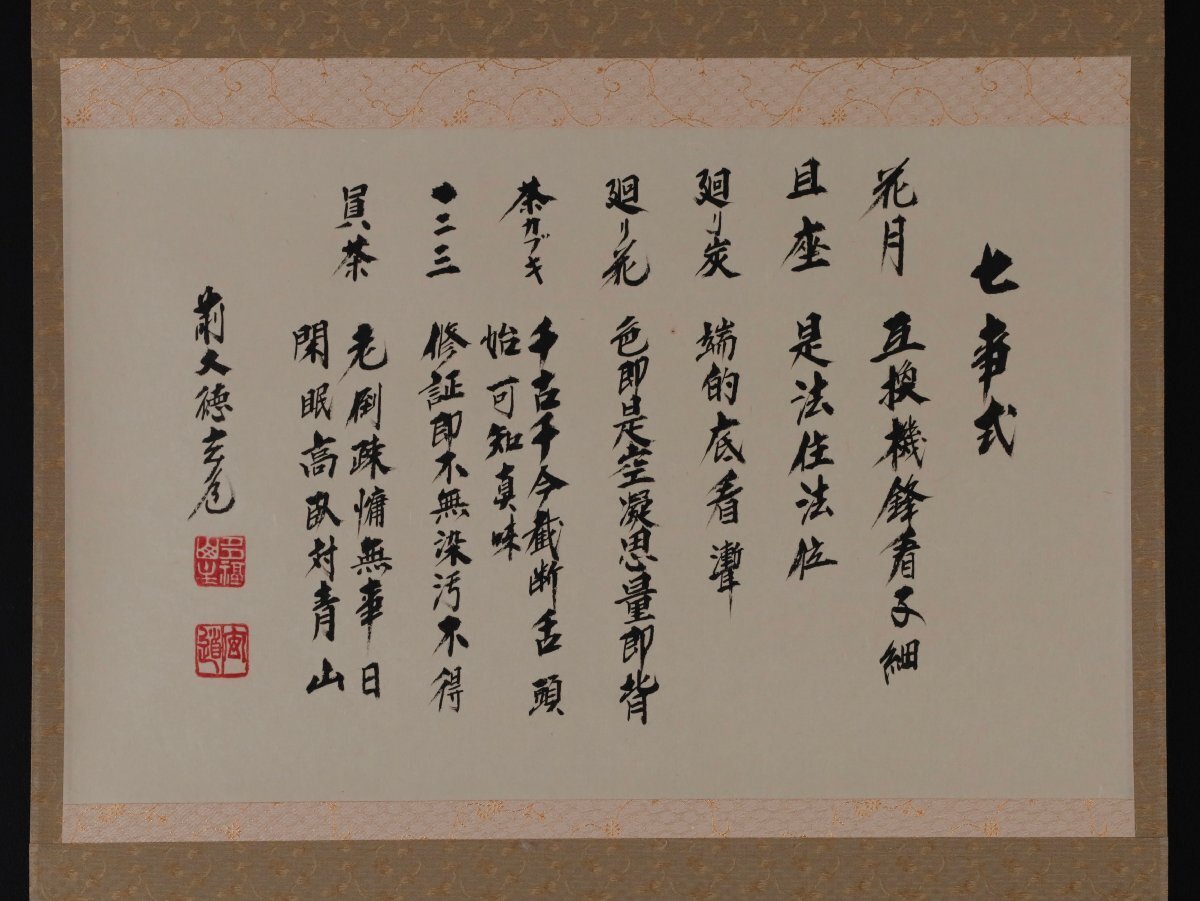 七事式
花月 互換機鋒看子細
且座 是法住法位
廻リ炭 端的底看漸
廻リ花 色即是空凝思量即背
茶カブキ 千古千今截断舌頭
始可知真味
一二三 修証即不無染汚不得
員茶 老倒疎慵無事日
閑眠高臥対青山
前大徳